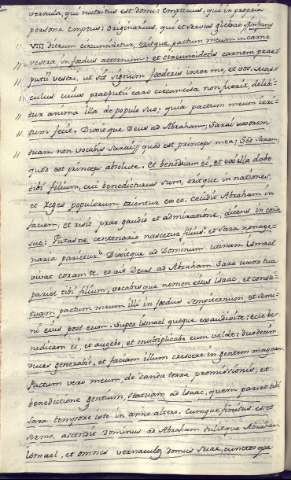 vernula, quia nutritus est domi: emptitius, quia in propria
persona emptus: originarius, quia
VIII dierum circumcidetur, eritque pactum meum in carne
vestra in fœdus æternum: et circumcidetis carnem præ
putii vestri, ut sit signum fœderis inter me, et vos. Mas
culus cuius præputii caro circumcisa non fuerit, dele
tur anima illa de populo suo; quia pactum meum irri
tum fecit. Dixitque Deus ad Abraham: Sarai uxorem
tuam non vocabis Sarai, quod est princeps mea; sed Saram,
quod est princeps absolute. Et benedicam ei, et ex illa dabo
tibi filium, cui benedicturus sum, eritque in nationes,
et Reges populorum orientur ex eo. Cecidit Abraham in
faciem, et risit præ gaudio et admiratione, dicens in corde
suo: Putasne centenario nascetur filius? et Sara nonage-
naria pariet? Dixitque ad Dominum: utinam Ismael
vivat coram te. et ait Deus ad Abraham: Sara uxor tua
pariet tibi filium, vocabisque nomen eius Isaac, et consti-
tuam pactum meum illi in fœdus sempiternum et semi-
ni eius post eum. Super Ismael quoque exaudivi te: ecce be-
nedicam ei, et augebo, et multiplicabo eum valde: duodecim
duces generabit, et faciam illum crescere in gentem magnam.
Pactum vero meum, de danda terra promissionis, et
benedictione gentium, statuam ad Isaac, quem pariet tibi
Sara tempore isto in anno altero. Cumque finitus esset
sermo, ascendit Dominus ab Abraham. tulitque Abraham
Ismael, et omnes vernaculos domus suæ, cunctosque